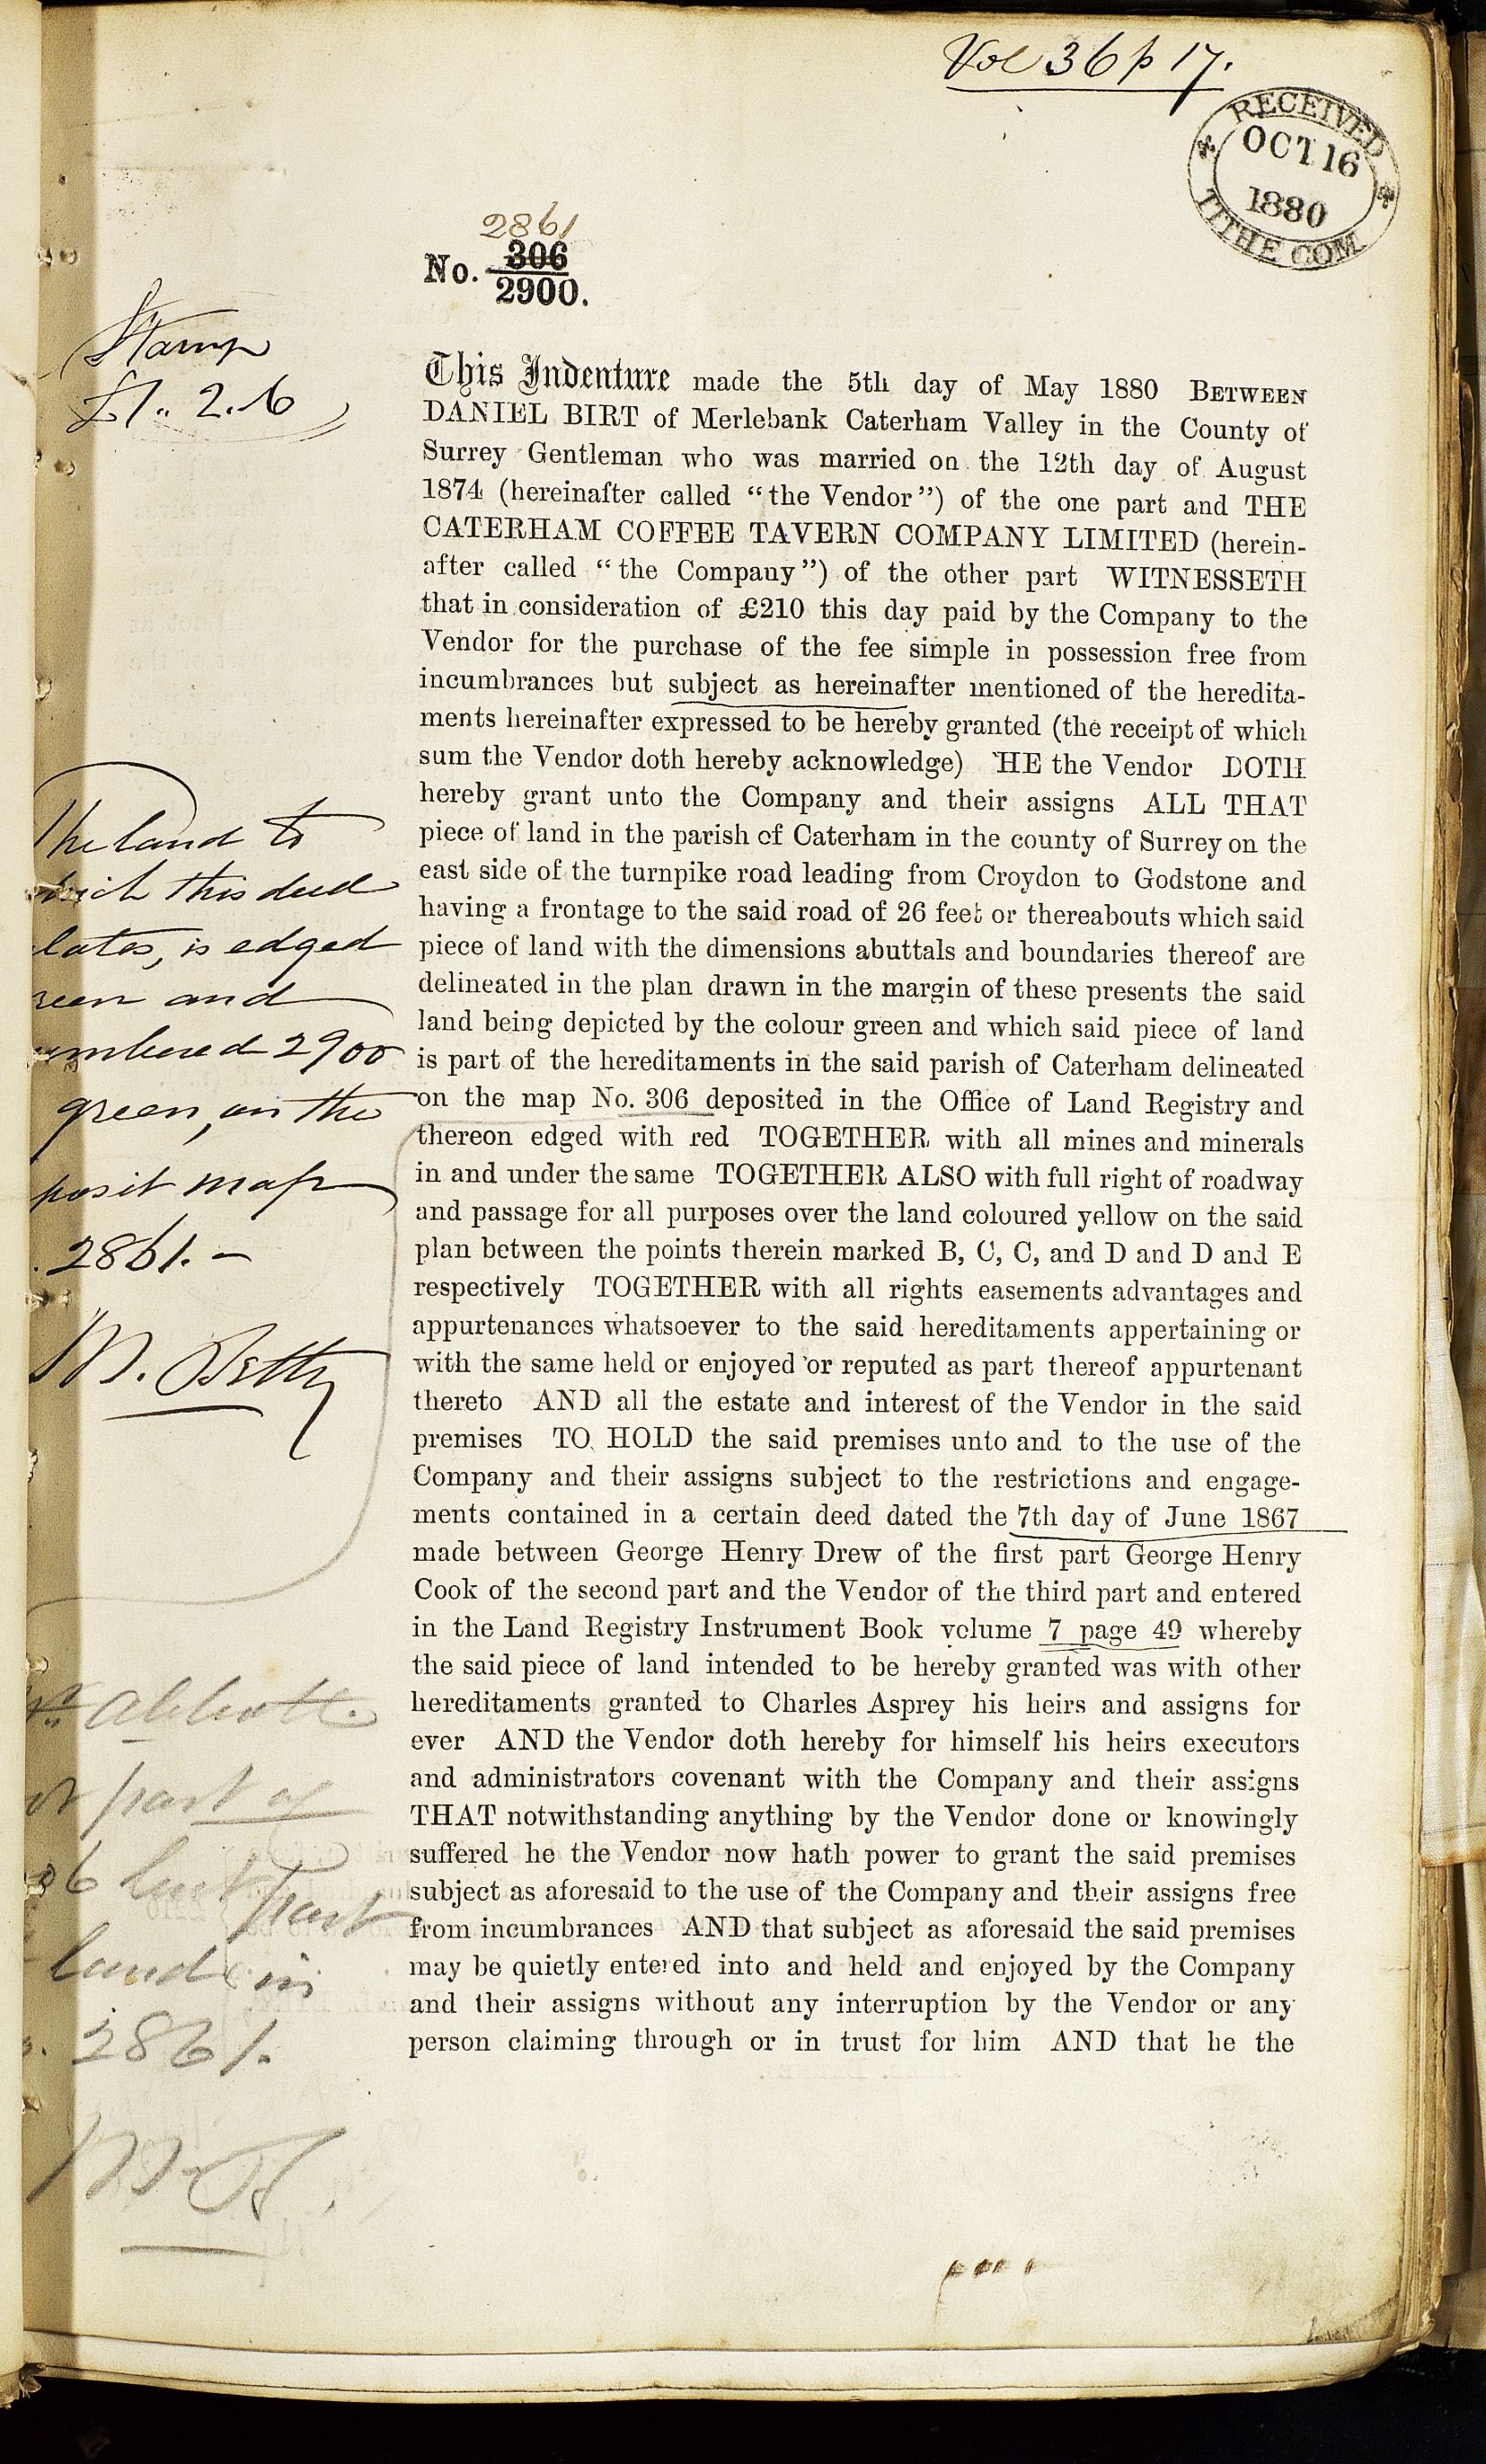 Vol 36 p 17.
RECEIVED
OCT 16
1880
TITHE COM
2861
No. 306
2900.
Stamp
£1.. 2. 6
This Indenture made the 5th day of May 1880 BETWEEN
DANIEL BIRT of Merlebank Caterham Valley in the County of
Surrey Gentleman who was married on the 12th day of August
1874 (hereinafter called “the Vendor”) of the one part and THE
CATERHAM COFFEE TAVERN COMPANY LIMITED (herein-
after called “the Company”) of the other part WITNESSETH
that in consideration of £210 this day paid by the Company to the
Vendor for the purchase of the fee simple in possession free from
incumbrances but subject as hereinafter mentioned of the heredita-
ments hereinafter expressed to be hereby granted (the receipt of which
sum the Vendor doth hereby acknowledge) HE the Vendor DOTH
hereby grant unto the Company and their assigns ALL THAT
piece of land in the parish of Caterham in the county of Surrey on the
east side of the turnpike road leading from Croydon to Godstone and
having a frontage to the said road of 26 feet or thereabouts which said
piece of land with the dimensions abuttals and boundaries thereof are
delineated in the plan drawn in the margin of these presents the said
land being depicted by the colour green and which said piece of land
is part of the hereditaments in the said parish of Caterham delineated
on the map No. 306 deposited in the Office of Land Registry and
thereon edged with red TOGETHER with all mines and minerals
in and under the same TOGETHER ALSO with full right of roadway
and passage for all purposes over the land coloured yellow on the said
plan between the points therein marked B, C, C, and D and D and E
respectively TOGETHER with all rights easements advantages and
appurtenances whatsoever to the said hereditaments appertaining or
with the same held or enjoyed or reputed as part thereof appurtenant
thereto AND all the estate and interest of the Vendor in the said
premises TO HOLD the said premises unto and to the use of the
Company and their assigns subject to the restrictions and engage-
ments contained in a certain deed dated the 7th day of June 1867
made between George Henry Drew of the first part George Henry
Cook of the second part and the Vendor of the third part and entered
in the Land Registry Instrument Book volume 7 page 49 whereby
the said piece of land intended to be hereby granted was with other
hereditaments granted to Charles Asprey his heirs and assigns for
ever AND the Vendor doth hereby for himself his heirs executors
and administrators covenant with the Company and their assigns
THAT notwithstanding anything by the Vendor done or knowingly
suffered he the Vendor now hath power to grant the said premises
subject as aforesaid to the use of the Company and their assigns free
from incumbrances AND that subject as aforesaid the said premises
may be quietly entered into and held and enjoyed by the Company
and their assigns without any interruption by the Vendor or any
person claiming through or in trust for him AND that he the
The land to
which this deed
lates, is edged
reen and
umbered 2900
green, on the
posit map
. 2861. -
M. Betty
Abbott.
part of
6 but part
land in
2861.
M.B.